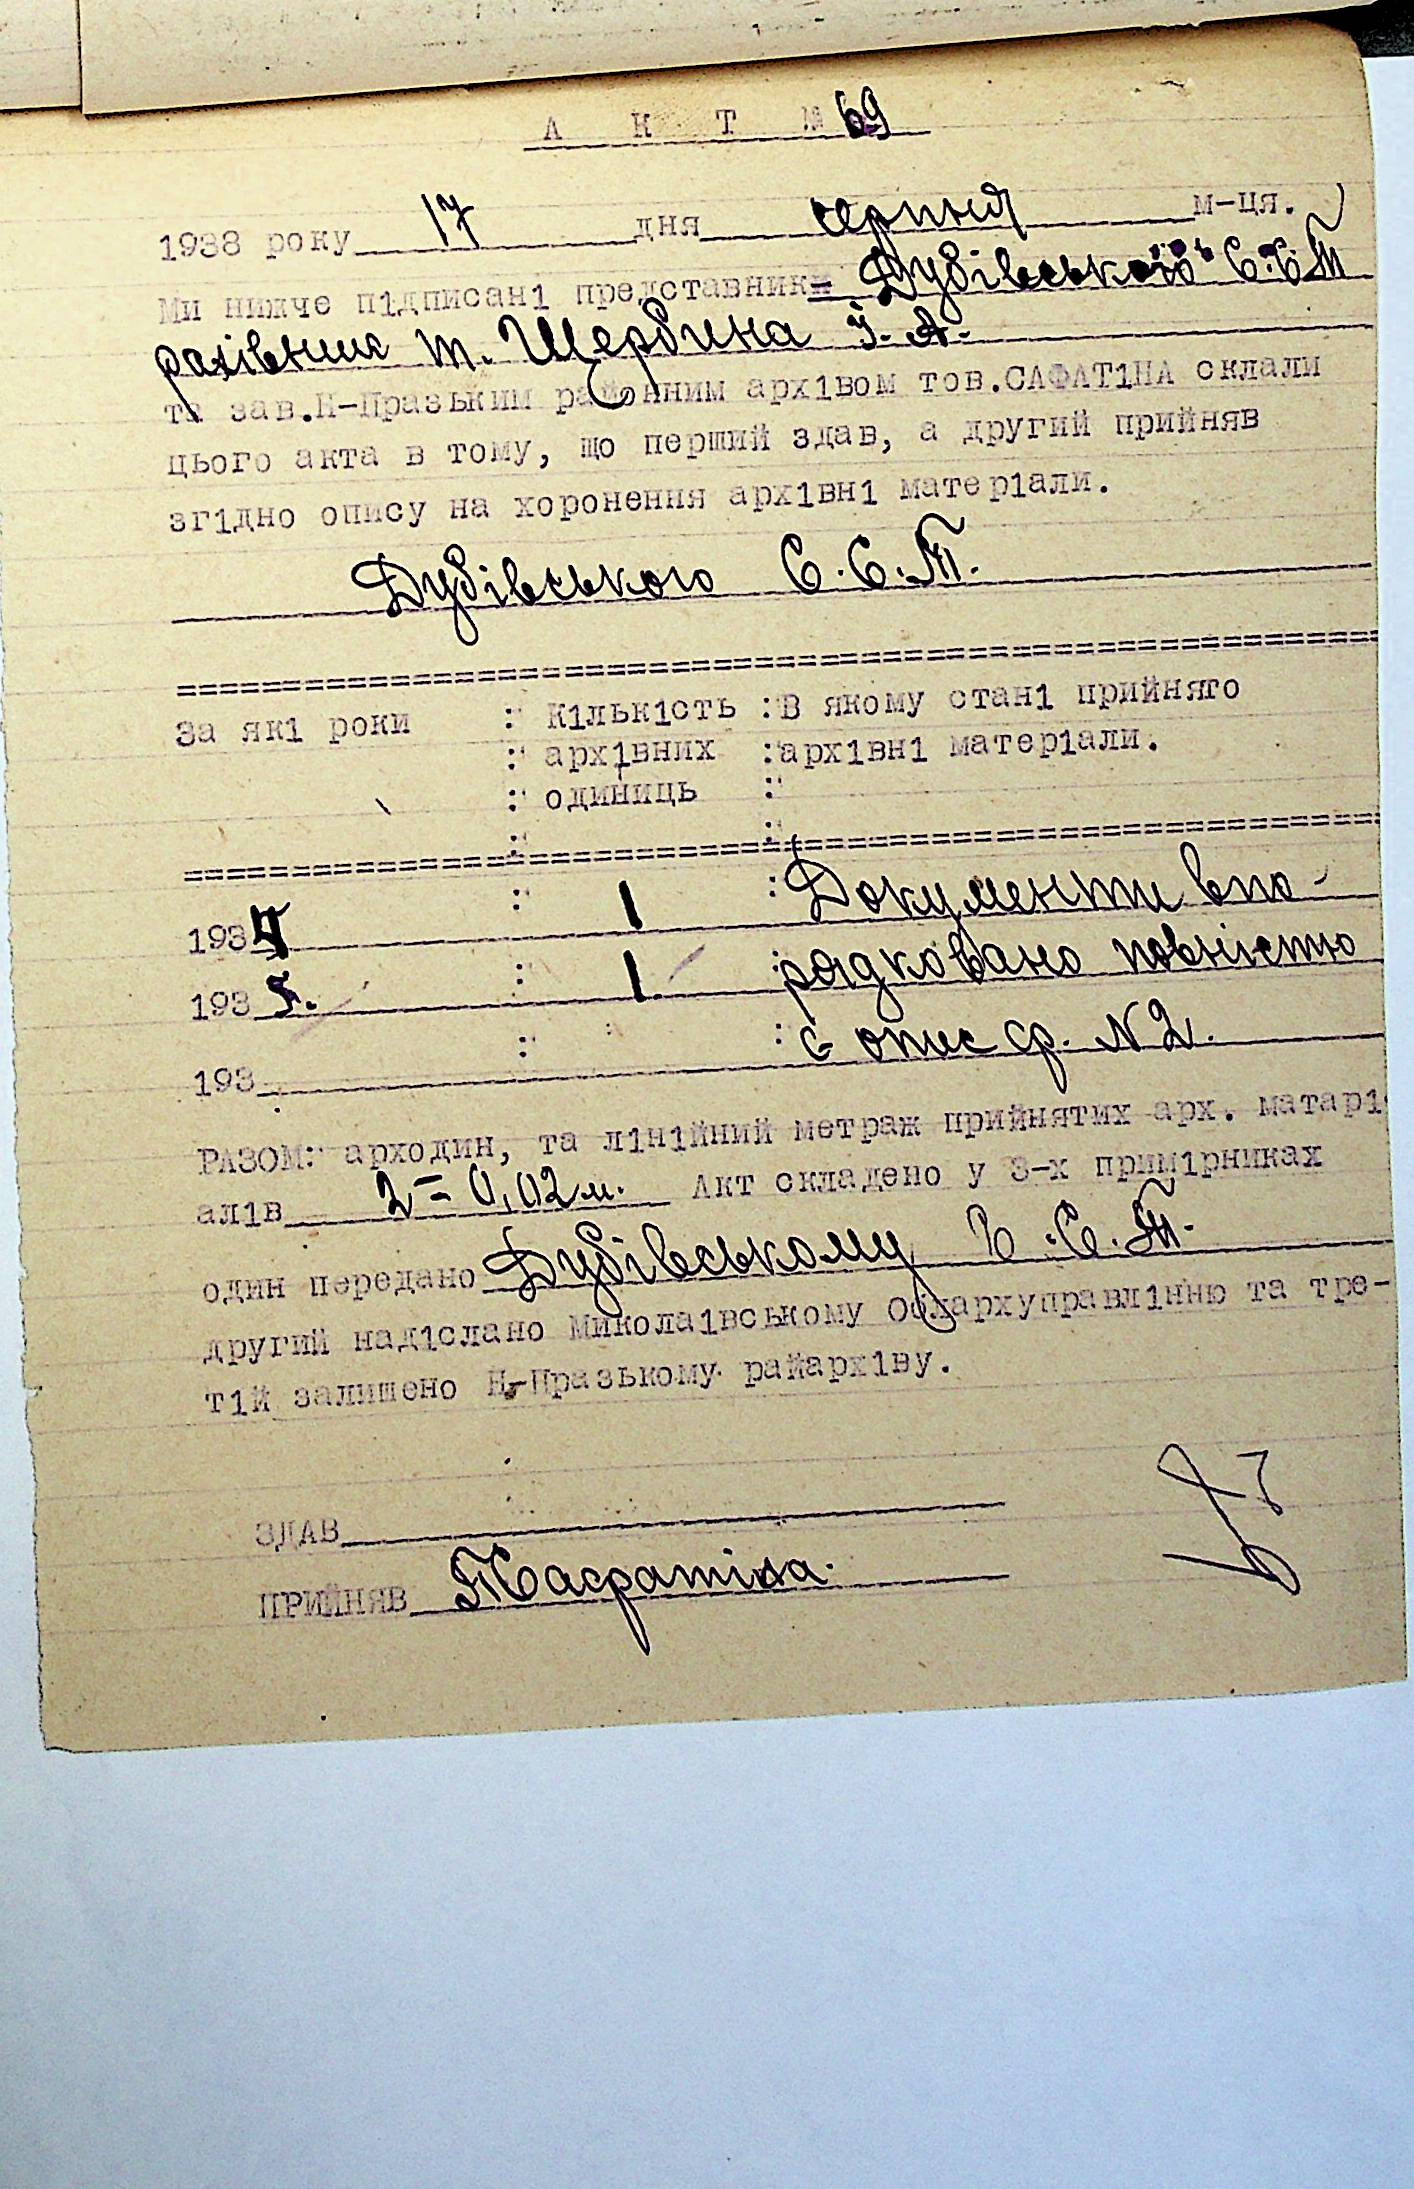 А К Т № 69
1938 року 17 дня серпня м-ця.
Ми нижче пiдписанi представники Дубівського С.С.Т
рахівник т. Щербина І. А.
та зав.Н-Празьким районним архiвом тов.САФАТIНА склали
цього акта в тому, що перший здав, а другий прийняв
згiдно опису на хоронення архiвнi матерiали.
Дубівського С.С.Т.
За якi роки : Кiлькiсть : В якому станi прийняго
: архiвних : архiвнi матерiали.
: одиниць :
1934 : 1 : Документи впо-
1935. : 1 : рядковано повністю
193 : : є опис ф. N 2.
РАЗОМ: арходин, та лiнiйний метраж прийнятих арх. матарi
алiв 2 = 0,02 м. Акт складено у 3-х примiрниках
один передано Дубівському С.С.Т.
другий надiслано Миколаiвському Облархуправлiнню та тре-
тiй залишено Н-Празькому райархiву.
ЗДАВ
ПРИЙНЯВ Сафатіна.